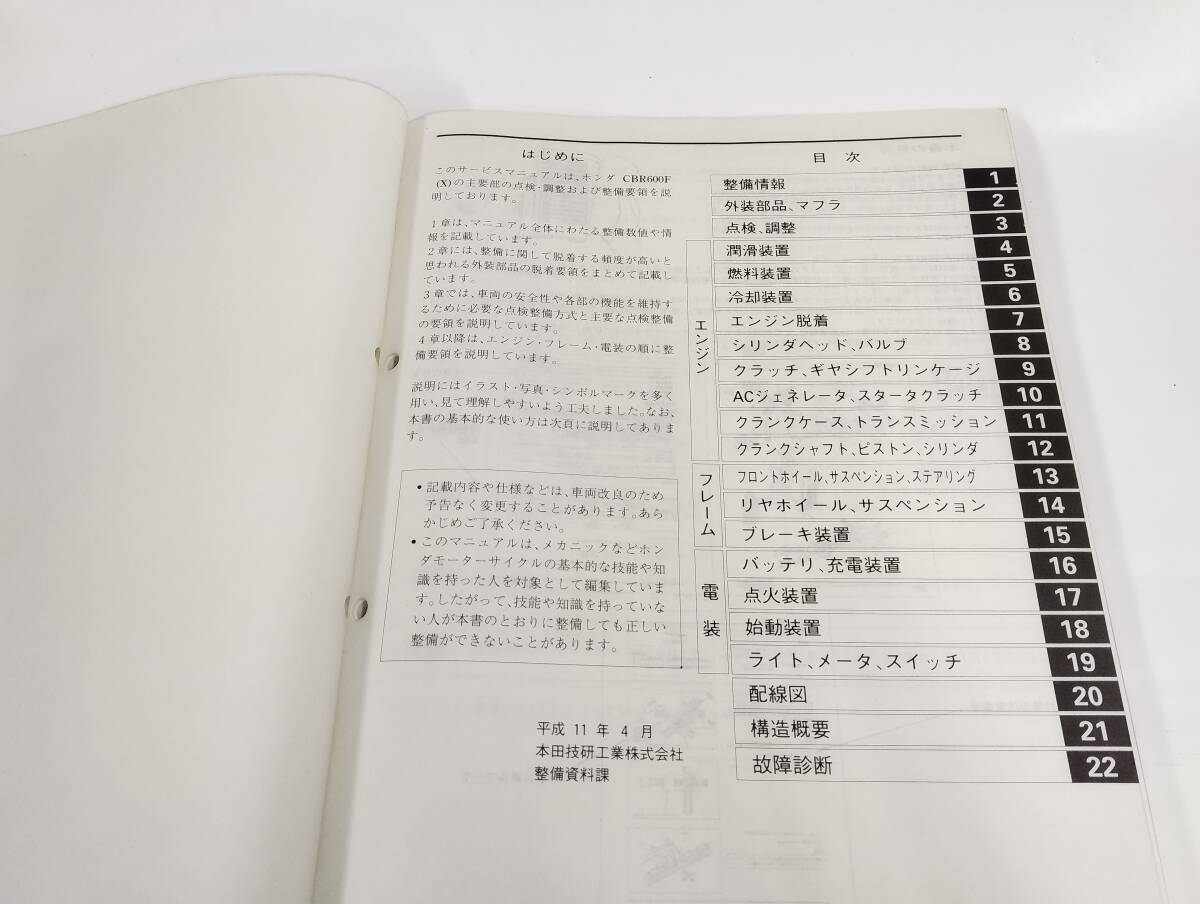 はじめに
このサービスマニュアルは、ホンダ CBR600F
(X)の主要部の点検・調整および整備要領を説
明しております。
1章は、マニュアル全体にわたる整備数値や情
報を記載しています。
2章には、整備に関して脱着する頻度が高いと
思われる外装部品の脱着要領をまとめて記載し
ています。
3章では、車両の安全性や各部の機能を維持す
るために必要な点検整備方式と主要な点検整備
の要領を説明しています。
4章以降は、エンジン・フレーム・電装の順に整
備要領を説明しています。
説明にはイラスト・写真・シンボルマークを多く
用い、見て理解しやすいよう工夫しました。なお、
本書の基本的な使い方は次頁に説明してありま
す。
・記載内容や仕様などは、車両改良のため
予告なく変更することがあります。あら
かじめご了承ください。
・このマニュアルは、メカニックなどホン
ダモーターサイクルの基本的な技能や知
識を持った人を対象として編集していま
す。したがって、技能や知識を持っていな
い人が本書のとおりに整備しても正しい
整備ができないことがあります。
平成 11 年 4 月
本田技研工業株式会社
整備資料課
目 次
整備情報 1
外装部品、マフラ 2
点検、調整 3
エンジン
潤滑装置 4
燃料装置 5
冷却装置 6
エンジン脱着 7
シリンダヘッド、バルブ 8
クラッチ、ギヤシフトリンケージ 9
ACジェネレータ、スタータクラッチ 10
クランクケース、トランスミッション 11
クランクシャフト、ピストン、シリンダ 12
フレーム
フロントホイール、サスペンション、ステアリング 13
リヤホイール、サスペンション 14
ブレーキ装置 15
電装
バッテリ、充電装置 16
点火装置 17
始動装置 18
ライト、メータ、スイッチ 19
配線図 20
構造概要 21
故障診断 22